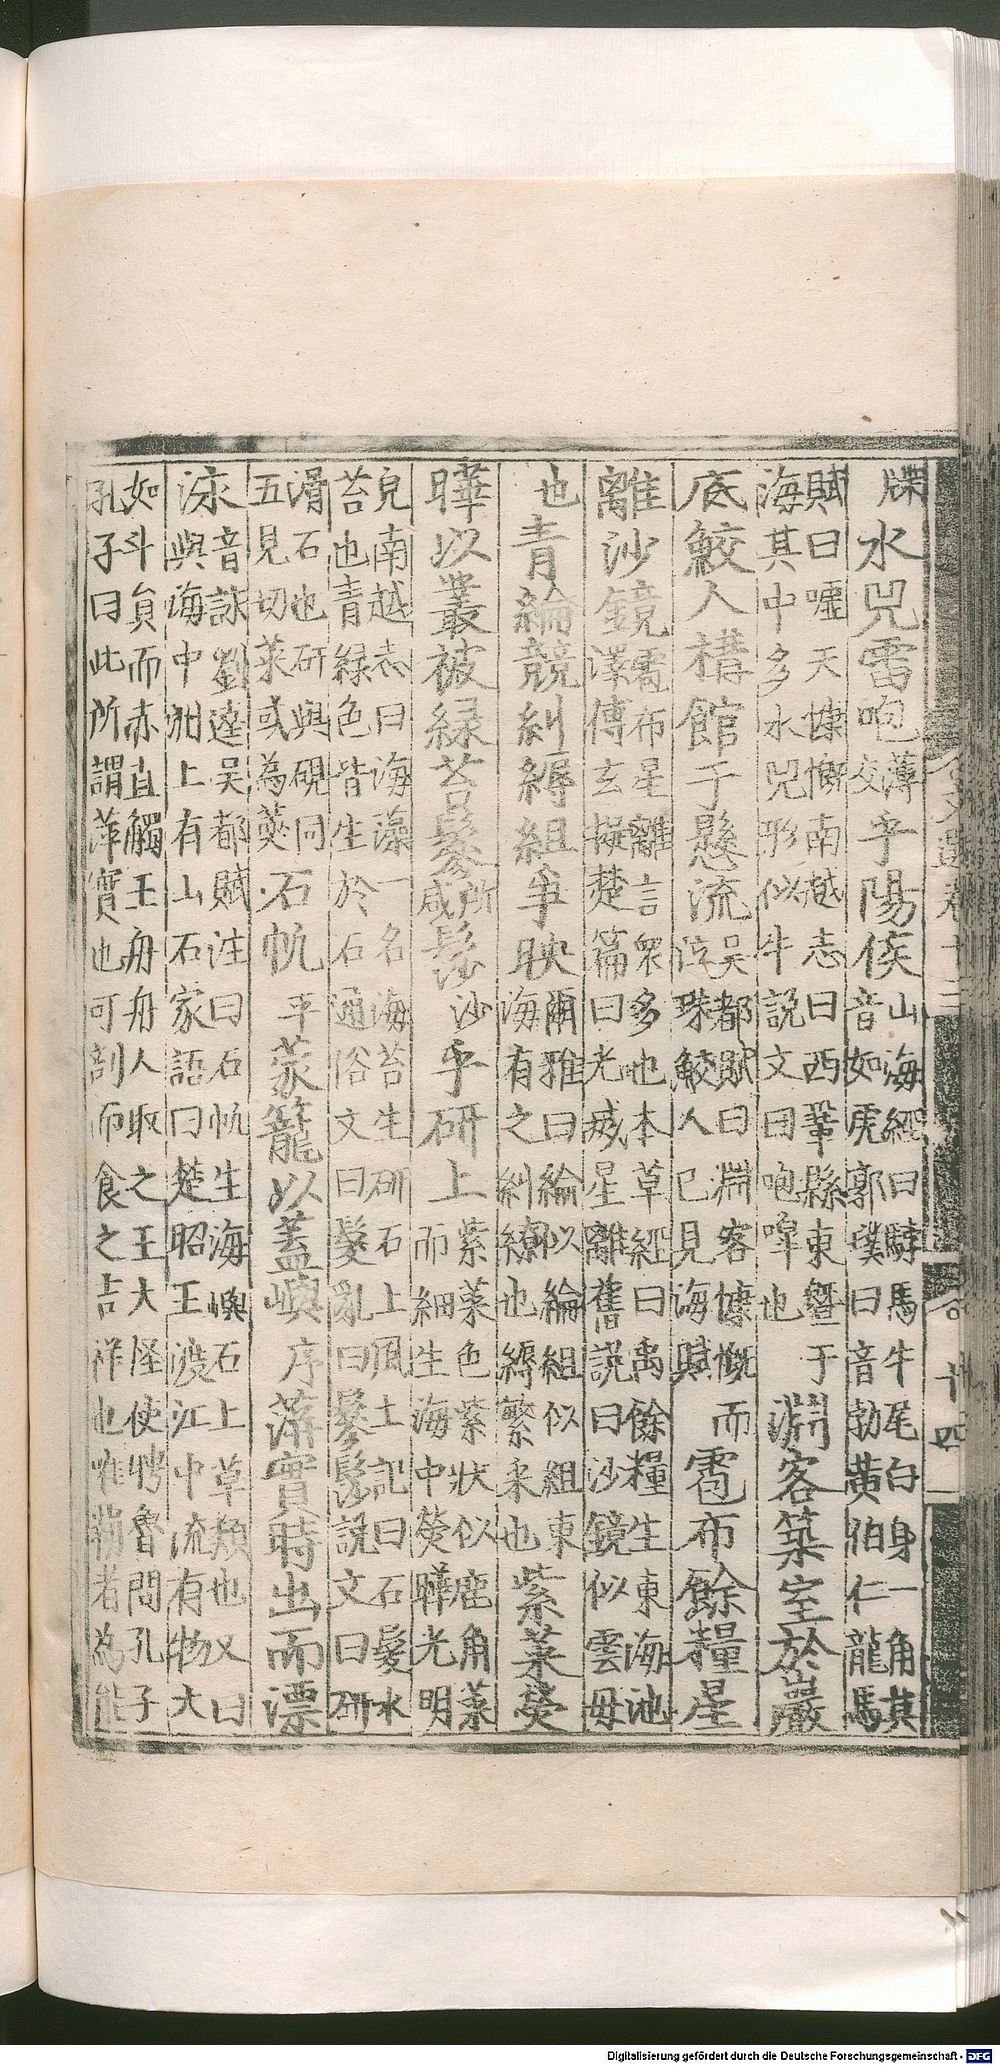 牒水兕雷咆薄交乎陽侯山海經曰駮馬牛尾白身一角其
音如虎郭璞曰音勃黄伯仁龍馬
賦曰嘘天慷慨南越志曰西鞏縣東暨于
海其中多水兕形似牛說文曰咆嘷也淵客築室於巖
底鮫人構館于懸流吳都賦曰淵客慷慨而
泣珠鮫人已見海賦雹布餘糧星
離沙鏡雹布星離言衆多也本草經曰禹餘糧生東海池
澤傅玄擬楚篇曰光滅星離舊說曰沙鏡似雲母
也青綸競糾縟組爭映爾雅曰綸似綸組似組東
海有之糾繚也縟繁采也紫菜熒
曄以叢被緑苔鬖所咸髿沙乎研上紫菜色紫狀似鹿角菜
而細生海中熒曄光明
皃南越志曰海藻一名海苔生研石上風土記曰石髮水
苔也青緑色皆生於石通俗文曰髮亂曰鬖髿說文曰研
滑石也研與硯同
五見切菜或為石帆平蒙籠以蓋嶼序蓱實時出而漂
泳音詠劉逵吳都賦注曰石帆生海嶼石上草類也又曰
嶼海中洲上有山石家語曰楚昭王渡江中流有物大
如斗員而赤直觸王舟舟人取之王大怪使聘魯問孔子
孔子曰此所謂萍實也可剖而食之吉祥也唯霸者為能
Digitalisierung gefördert durch die Deutsche Forschungsgemeinschaft - DFG